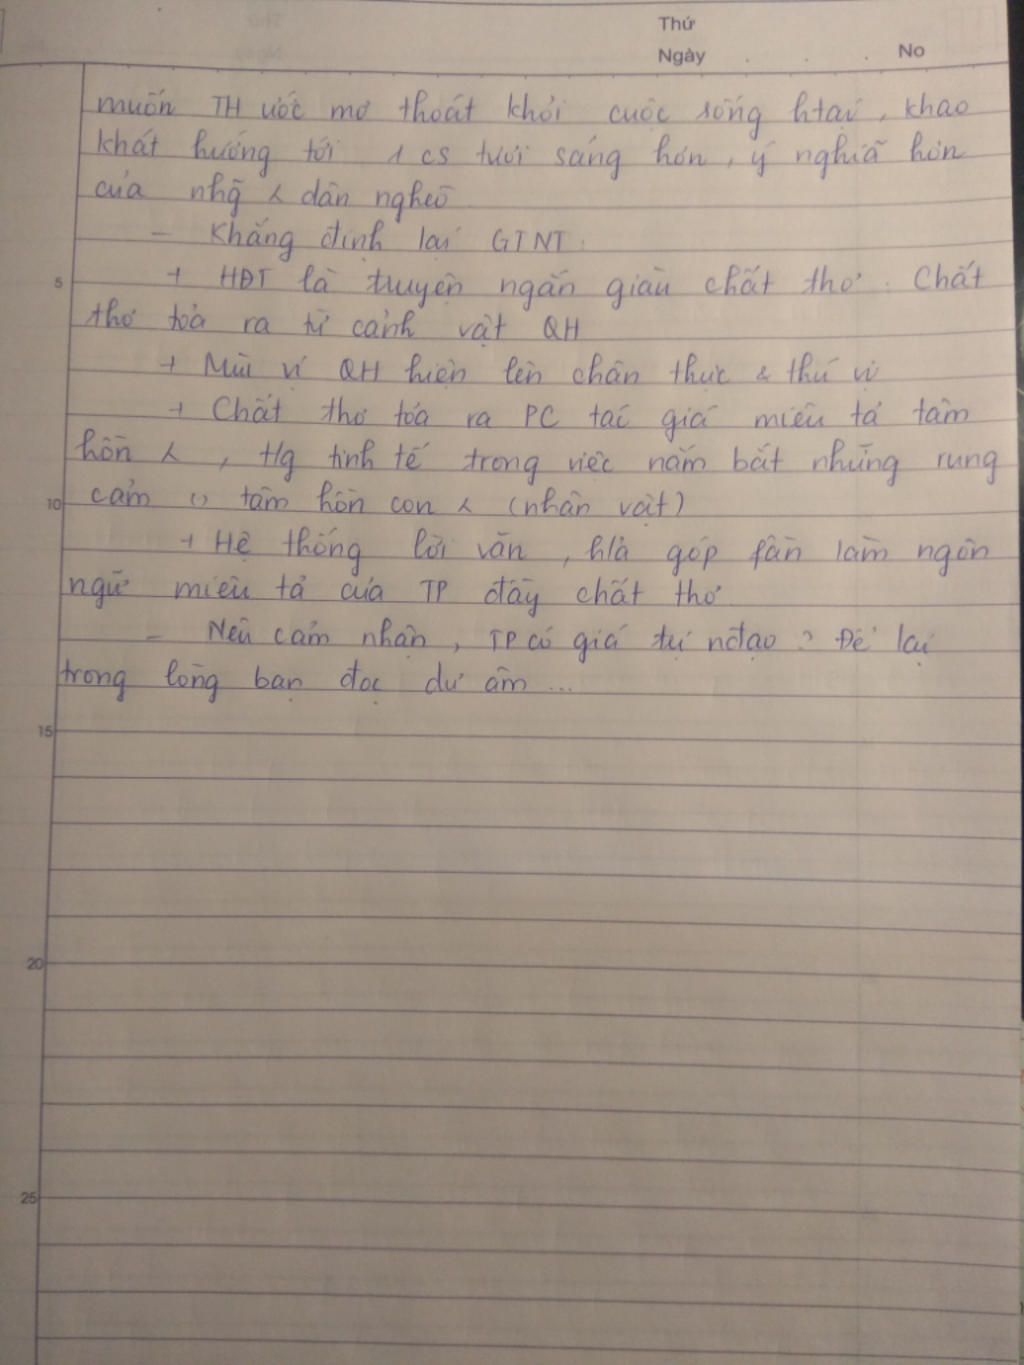 Thứ
Ngày . . . No
muốn TH ước mơ thoát khỏi cuộc sống htại, khao
khát hướng tới 1 cs tươi sáng hơn, ý nghĩa hơn
của nhg~ dân nghèo
- Khẳng định lại GTNT:
5
+ HĐT là truyện ngắn giàu chất thơ. Chất
thơ tỏa ra từ cảnh vật QH
+ Mùi vị QH hiện lên chân thực & thú vị
+ Chất thơ tỏa ra PC tác giả miêu tả tâm
hồn , tinh tế trong việc nắm bắt những rung
10
cảm tâm hồn con (nhân vật)
+ Hệ thống lời văn, góp fần làm ngôn
ngữ miêu tả của TP đầy chất thơ
- Nêu cảm nhận, TP có giá trị nđạo ? Để lại
trong lòng bạn đọc dư âm...
15
20
25